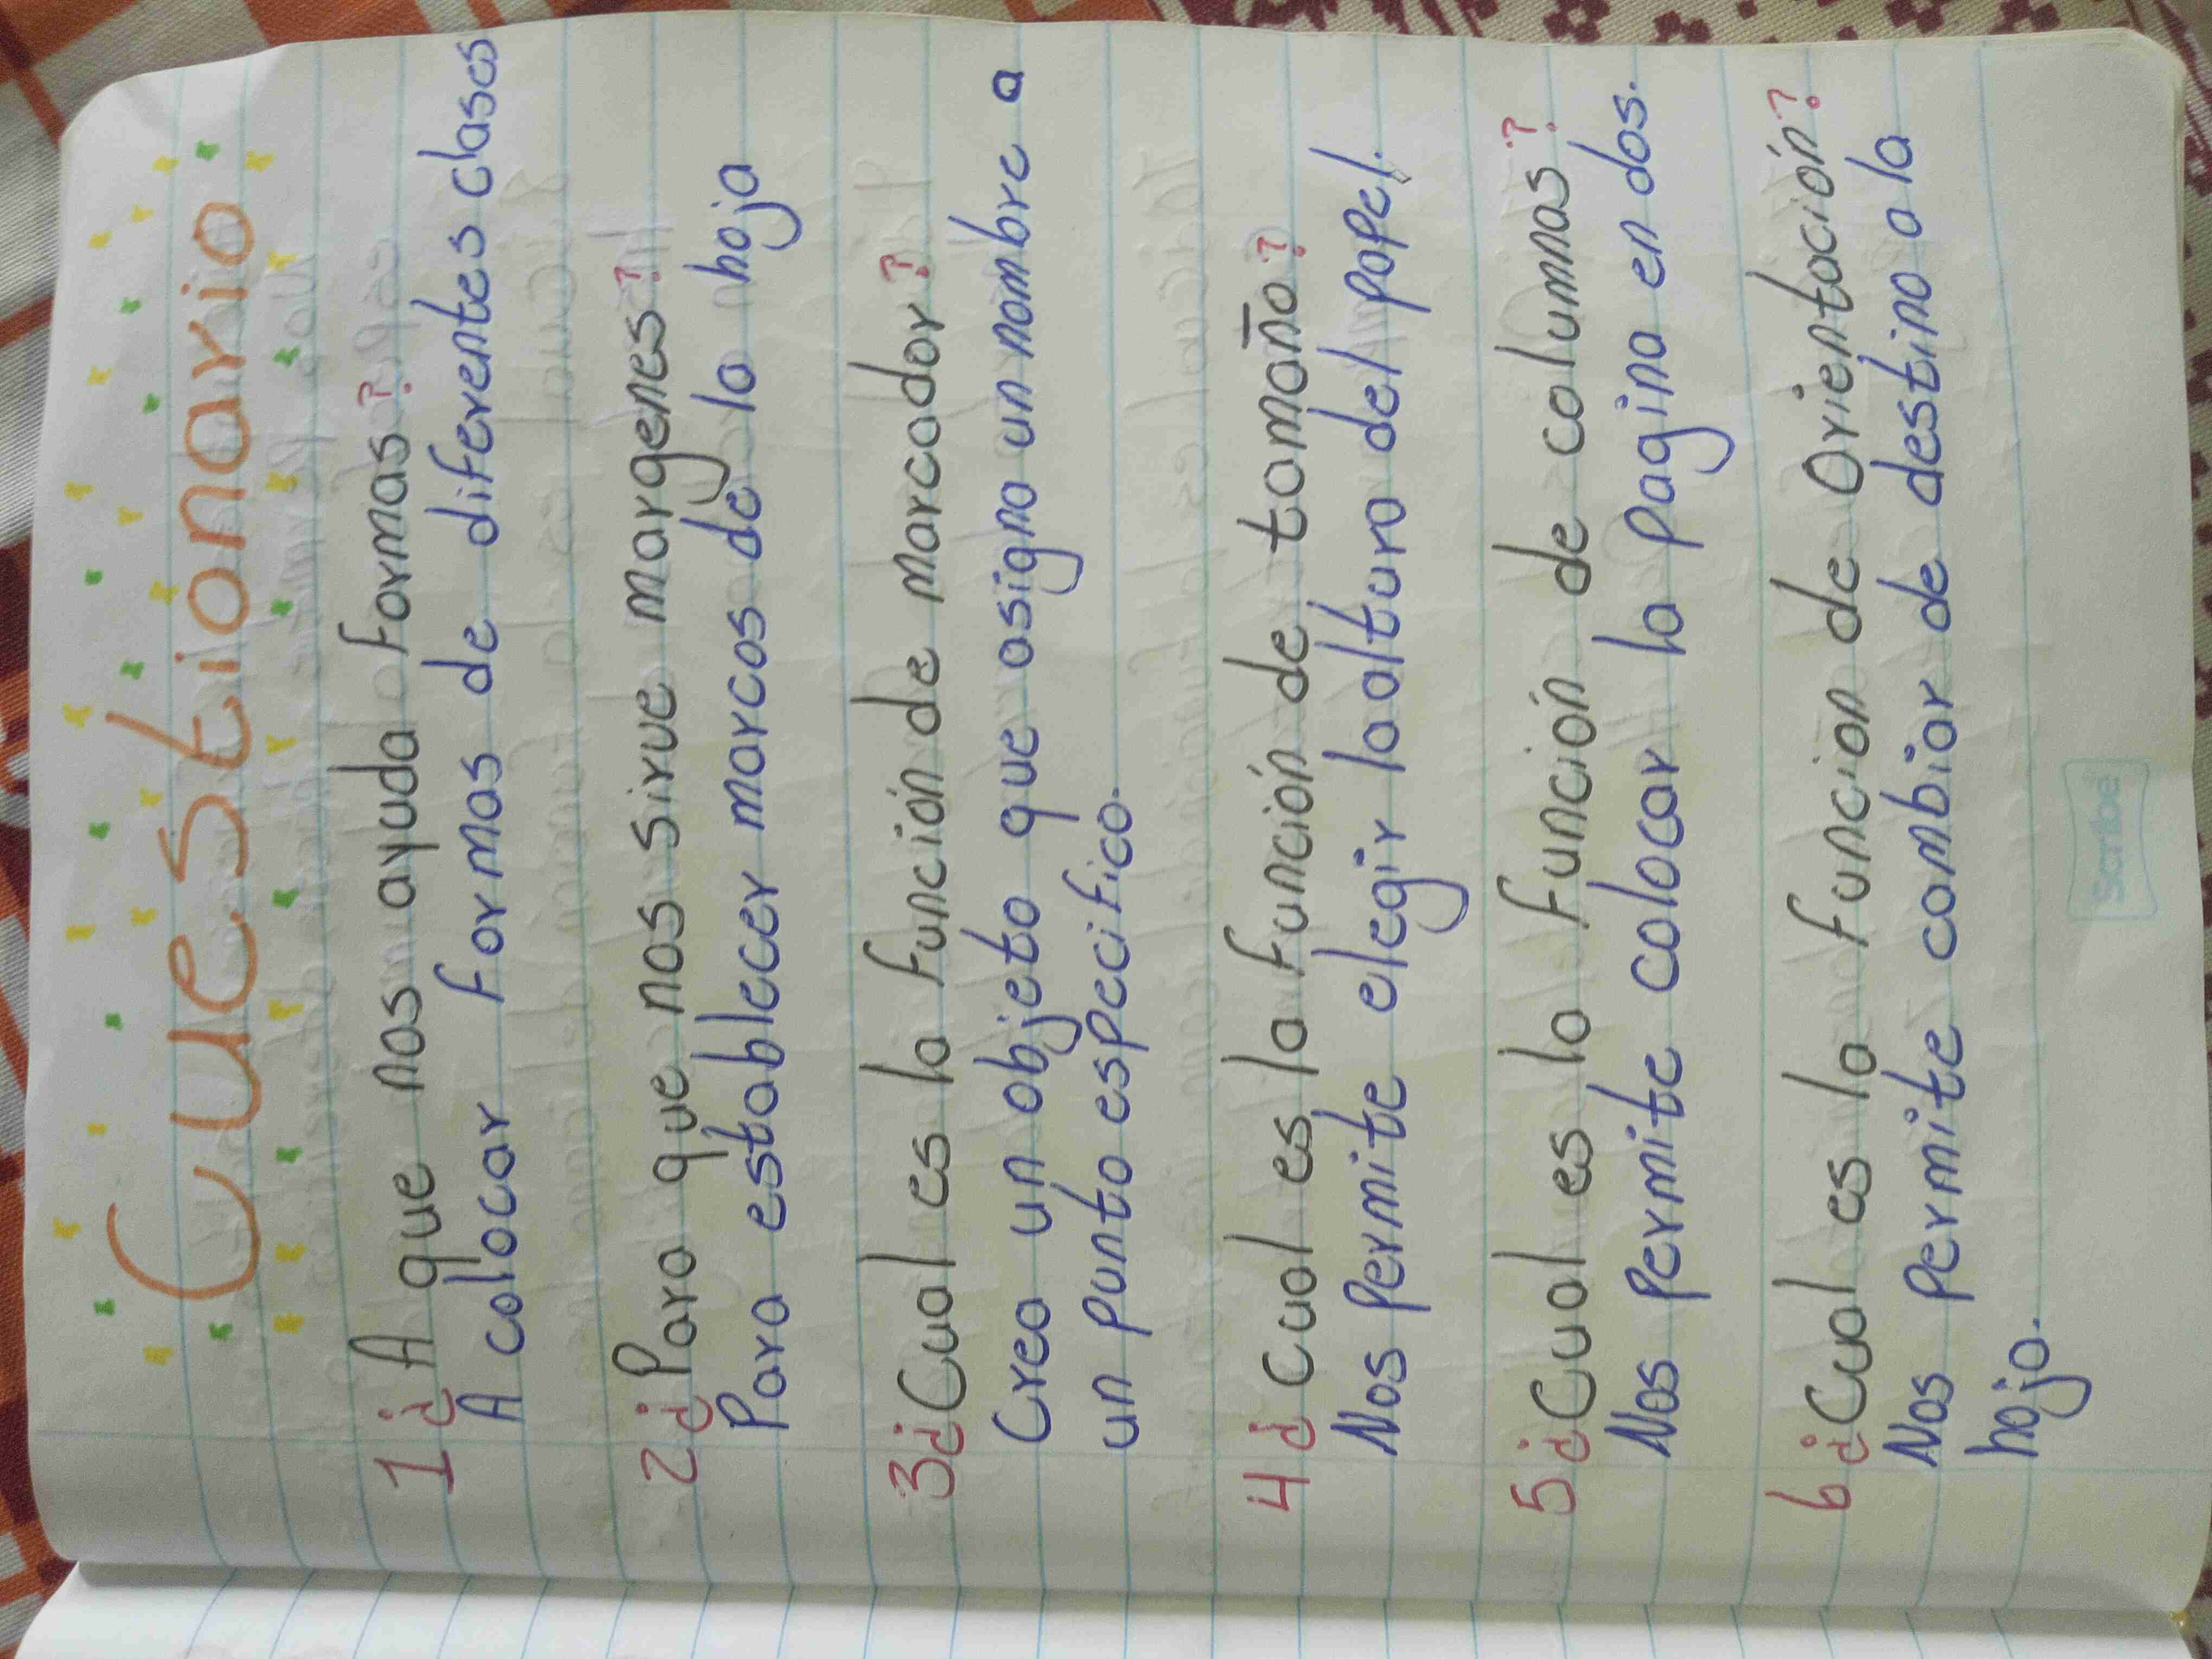 Cuestionario
1 ¿A que nos ayuda formas?
A colocar formas de diferentes clases
2 ¿Para que nos sirve margenes?
Para establecer marcos de la hoja
3 ¿Cual es la función de marcador?
Crea un objeto que asigna un nombre a
un punto especifico.
4 ¿Cual es la función de tamaño?
Nos permite elegir la altura del papel.
5 ¿Cual es la función de columnas?
Nos permite colocar la pagina en dos.
6 ¿Cual es la funcion de Orientación?
Nos permite cambiar de destino a la
hoja.
Scribe